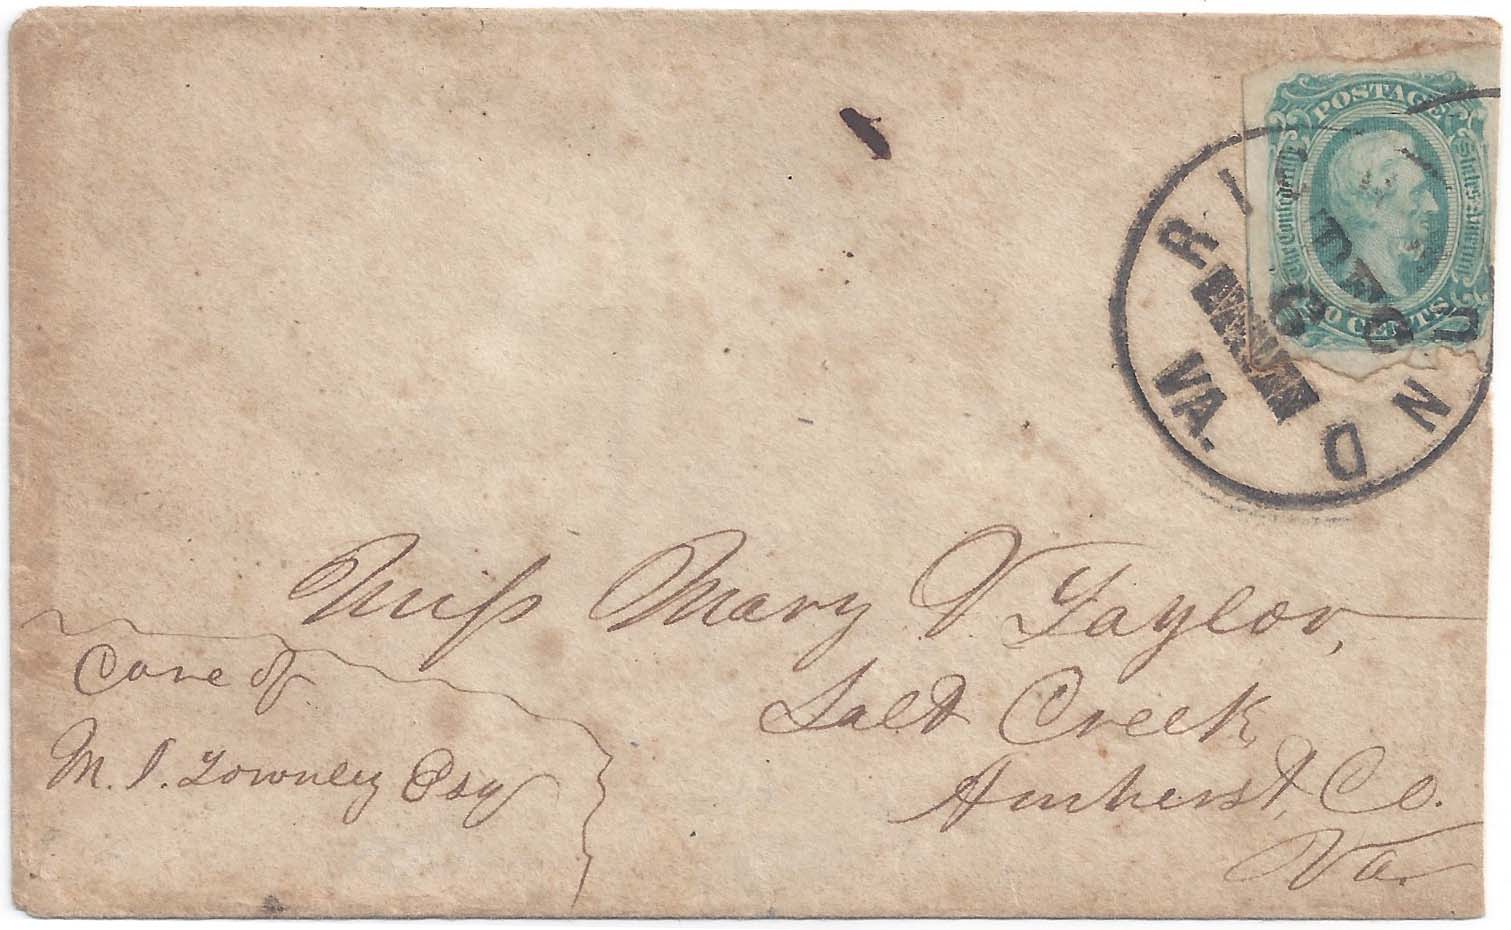 POSTAGE
The Confederate States America
CENTS
RICHMOND
DEC
VA.
Miss Mary V Taylor,
Salt Creek,
Amherst, Co.
Va.
Care of
M. Townley Esq